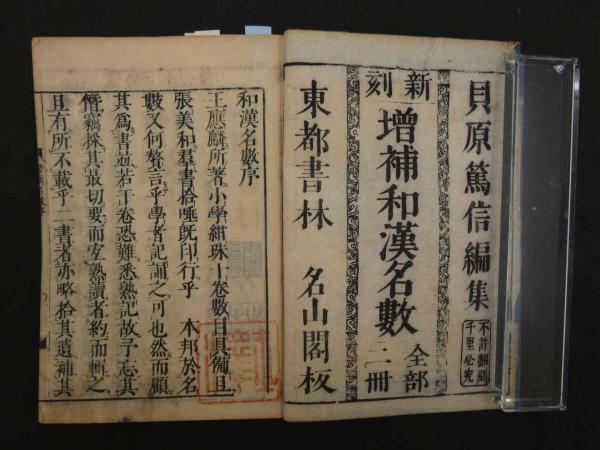 貝原篤信編集
不許翻刻
千里必究
新刻
増補和漢名數
全部
二冊
東都書林 名山閣板
和漢名數序
王應麟所著小學紺珠十卷數目具備且
張美和羣書拾唾既印行乎 本邦於名
數又何贅言乎學者記誦之可也然而顧
其為書並若干卷恐難悉熟記故予忘其
僭竊採其最切要而宜熟讀者約而輯之
且有所不載乎二書者亦略拾其遺補其